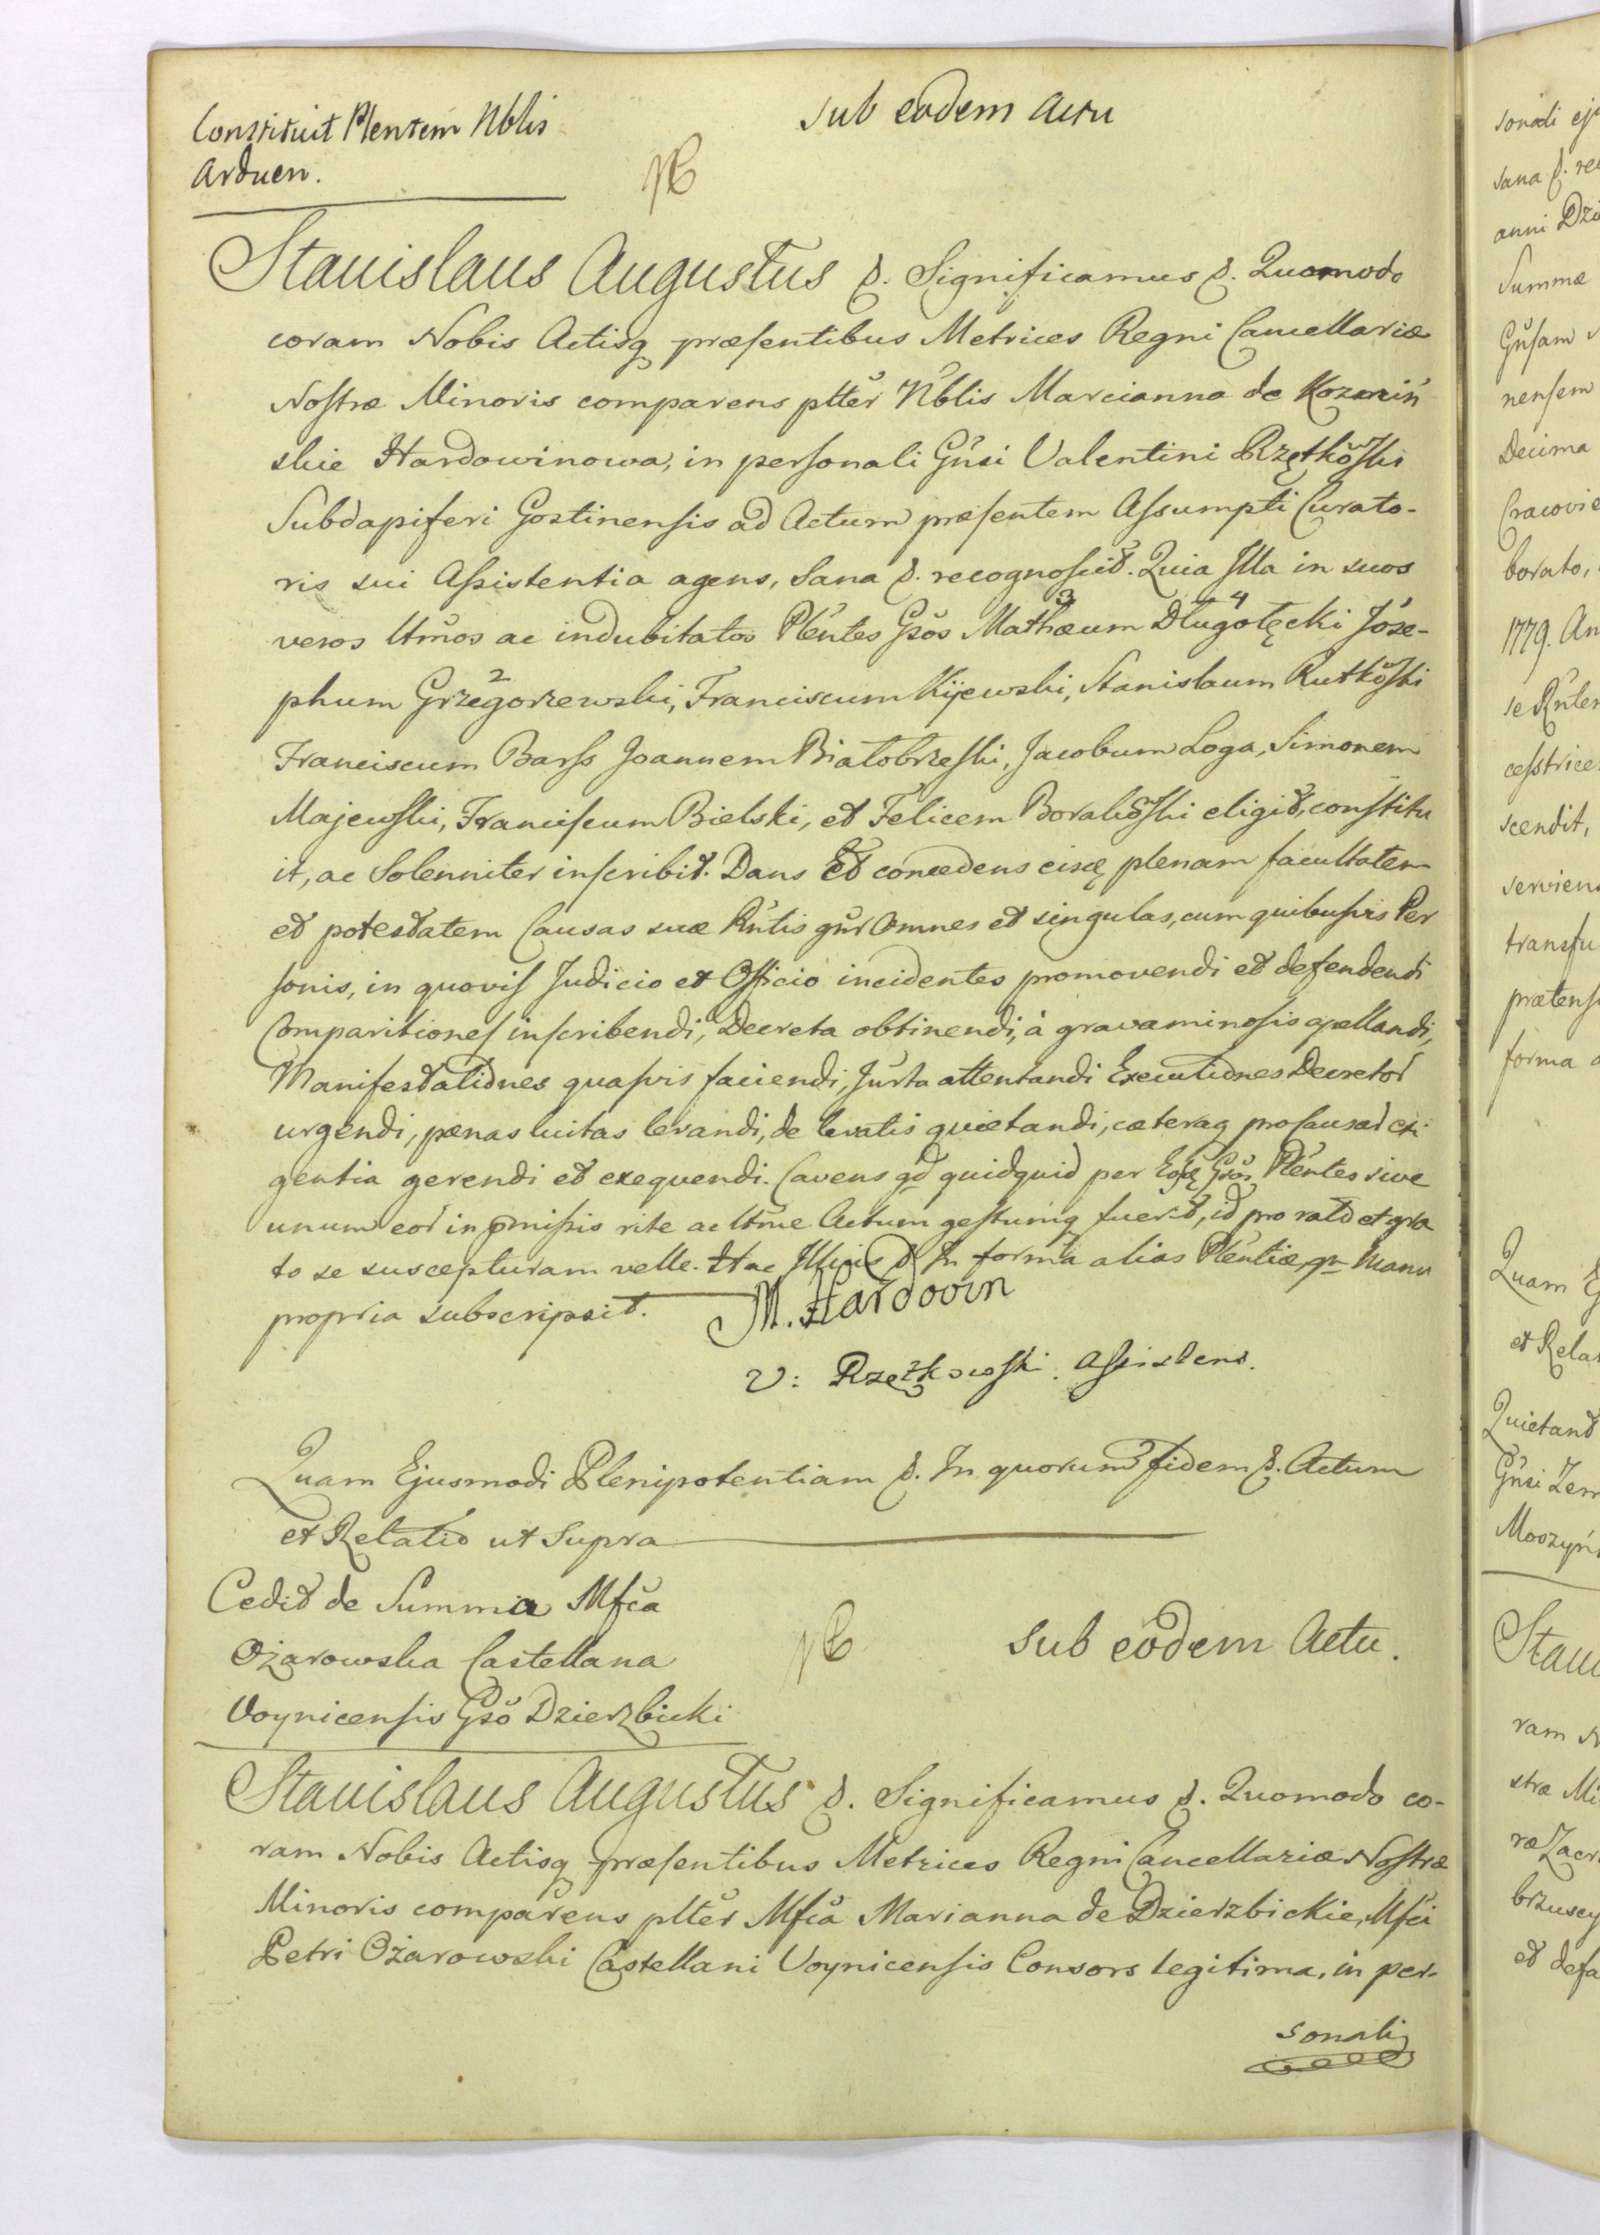 Constituit Plentem Nblis
Arduen.
sub eodem Actu
Stanislaus Augustus &. Significamus &. Quomodo
coram Nobis Actisq præsentibus Metrices Regni Cancellariæ
Nostræ Minoris comparens pltter Nblis Marcianna de Kozmiń
skie Hardowinowa, in personali Gnsi Valentini Rzętkowski
Subdapiferi Gostinensis ad Actum præsentem Assumpti Curato-
ris sui Assistentia agens, Sana &. recognoscit. Quia Illa in suos
veros ltmos ac indubitatos Plentes Gsos Mathæum 3 Długołęcki 4 Jose-
phum Grzegorzewski 2, Franciscum Kijewski, Stanislaum Rutkowski
Franciscum Barss Joannem Białobrzeski, Jacobum Loga, Simonem
Majewski, Franciscum Bielski, et Felicem Borakowski eligit, constitu
it, ac Solenniter inscribit. Dans et concedens eisq plenam facultatem
et potestatem Causas suæ Rntis gnr Omnes et singulas, cum quibusvis Per
sonis, in quovis Judicio et Officio incidentes promovendi et defendendi
Comparitiones inscribendi, Decreta obtinendi, à gravaminosis apellandi,
Manifestationes quasvis faciendi, Jurta attentandi Executiones Decretor
urgendi, pænas luitas levandi, de levatis quietandi, cæteraq pro causar exi
gentia gerendi et exequendi. Cavens qd quidquid per Eosq Gsos Plentes sive
unum eor in pmissis rite ac ltme Actum gestumq fuerit, id pro rato et gra
to se suscepturam velle. Hac Illius &. In forma alias Plentiæ, qm Manu
propria subscripsit. M. Hardouin
V: Rzętkowski. Assistens.
Quam Ejusmodi Plenipotentiam &. In quorum fidem &. Actum
et Relatio ut Supra
Cedit de Summa Mfca
Ożarowska Castellana
Voynicensis Gso Dzierzbicki
sub eodem Actu.
Stanislaus Augustus &. Significamus &. Quomodo co-
ram Nobis Actisq præsentibus Metrices Regni Cancellariæ Nostræ
Minoris comparens pltter Mfca Marianna de Dzierzbickie, Mfci
Petri Ożarowski Castellani Voynicensis Consors legitima, in per-
sonali